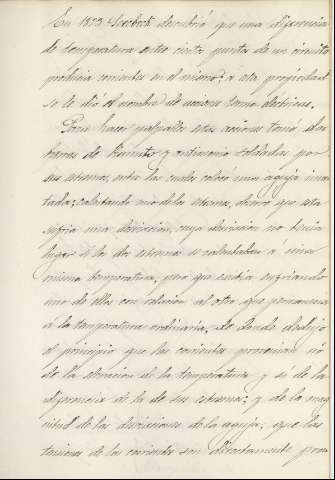 En 1823 Seebeck descubrió que una diferencia
de temperatura entre ciertos puntos de un circuito
producia corrientes en el mismo, á esta propiedad
se le dió el nombre de acciones termo eléctricas.
Para hacer palpables estas acciones tomó dos
barras de bismuto y antimonio soldadas por
sus extremos, entre las cuales colocó una aguja iman
tada; calentando uno de los extremos, observó que esta
sufria una desviación, cuya desviacion no tenia
lugar si los dos extremos se calentaban á una
misma temperatura, pero que existia enfriando
uno de ellos con relacion al otro que permanecia
á la temperatura ordinaria. De donde dedujo
el principio que las corrientes provenian nó
de la elevacion de la temperatura y si de la
diferencia de la de sus extremos; y de la mag
nitud de las desviaciones de la aguja, que las
tensiones de las corrientes son directamente pro